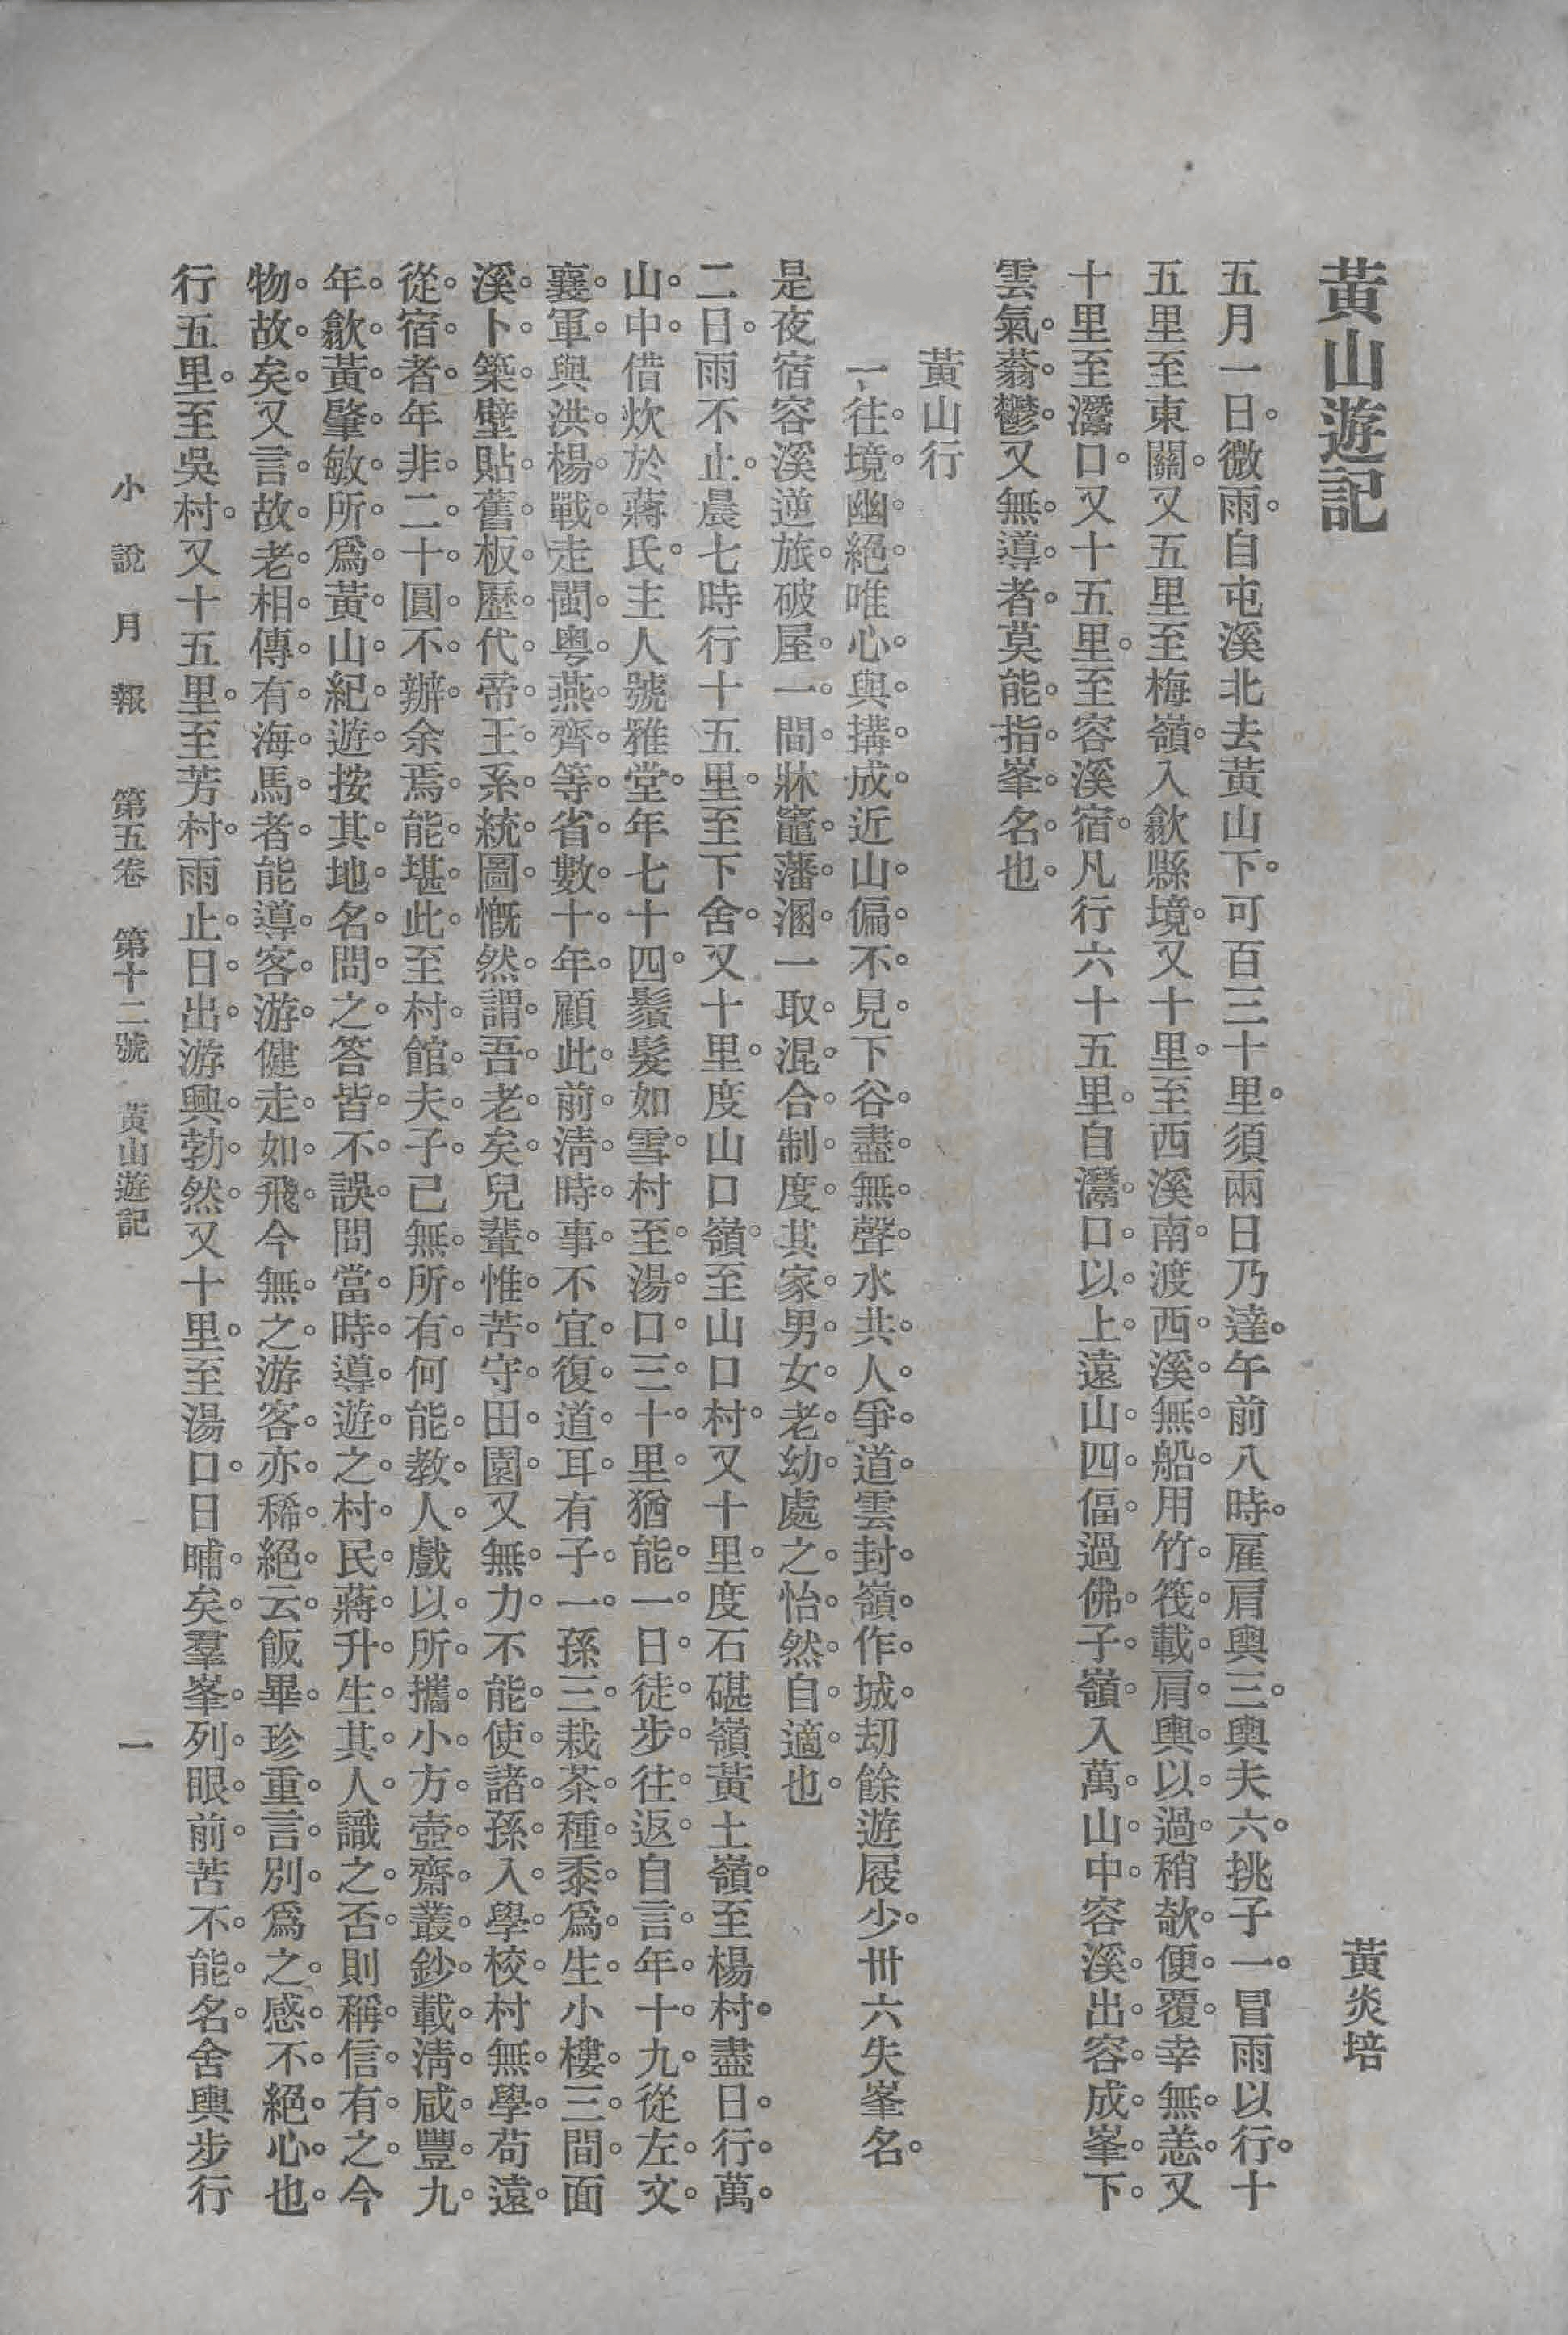 黃山遊記
黃炎培
五月一日。微雨。自屯溪北去黃山下。可百三十里。須兩日乃達。午前八時。雇肩輿三。輿夫六。挑子一。冒雨以行。十
五里至東關。又五里至梅嶺。入歙縣境。又十里。至西溪南。渡西溪。無船。用竹筏。載肩輿以過。稍欹。便覆。幸無恙。又
十里至灊口。又十五里。至容溪宿。凡行六十五里。自灊口以上。遠山四偪。過佛子嶺。入萬山中。容溪出容成峯下。
雲氣蓊鬱。又無導者。莫能指峯名也。
黃山行
一往境幽絕。唯心與搆成。近山偏不見。下谷盡無聲。水共人爭道。雲封嶺作城。刧餘遊屐少。卅六失峯名。
是夜宿容溪逆旅。破屋一間。牀竈藩溷。一取混合制度。其家男女老幼處之。怡然自適也。
二日。雨不止。晨七時行十五里。至下舍。又十里。度山口嶺。至山口村。又十里。度石碪嶺黃土嶺。至楊村。盡日行萬
山中。借炊於蔣氏。主人號雅堂。年七十四。鬚髮如雪。村至湯口。三十里。猶能一日徒步往返。自言年十九。從左文
襄軍。與洪楊戰。走閩粵燕齊等省。數十年。顧此前淸時事。不宜復道耳。有子一。孫三。栽茶種黍爲生。小樓三間。面
溪卜築。壁貼舊板歷代帝王系統圖。慨然謂吾老矣。兒輩惟苦守田園。又無力。不能使諸孫入學校。村無學。苟遠
從宿者。年非二十圓不辦。余焉能堪此。至村館夫子。已無所有。何能敎人。戲以所攜小方壺齋叢鈔。載淸咸豐九
年。歙黃肇敏所爲黃山紀遊。按其地名問之。答皆不誤。問當時導遊之村民蔣升生其人。識之否。則稱信有之。今
物故矣。又言故老相傳。有海馬者。能導客游。健走如飛。今無之。游客亦稀絕云。飯畢。珍重言別。爲之感不絕心也。
行五里。至吳村。又十五里。至芳村。雨止。日出。游興勃然。又十里。至湯口。日晡矣。羣峯列眼前。苦不能名。舍輿步行
小說月報 第五卷 第十二號 黃山遊記 一